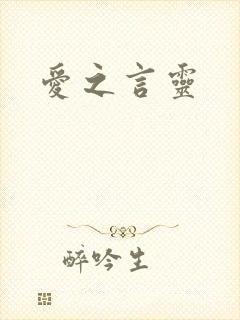 愛之言靈
醉吟生